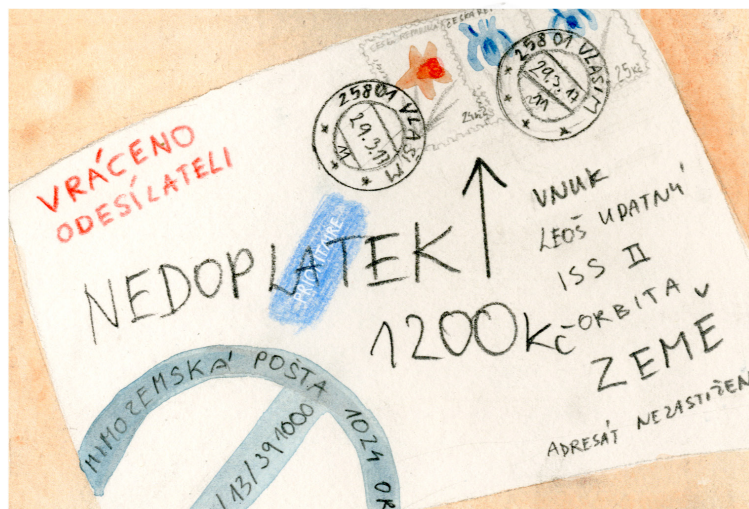 ČESKÁ REPUBLIKA
25801 VLAŠIM
29.3.17
25801 VLAŠIM
29.3.17
25Kč
25Kč
VRÁCENO
ODESÍLATELI
PRIORITAIRE
NEDOPLATEK
1200Kč
VNUK
LEOŠ UDATNÝ
ISS II
ORBITA
ZEMĚ
ADRESÁT NEZASTIŽEN
MIMOZEMSKÁ POŠTA 1024 OR
/13/391000